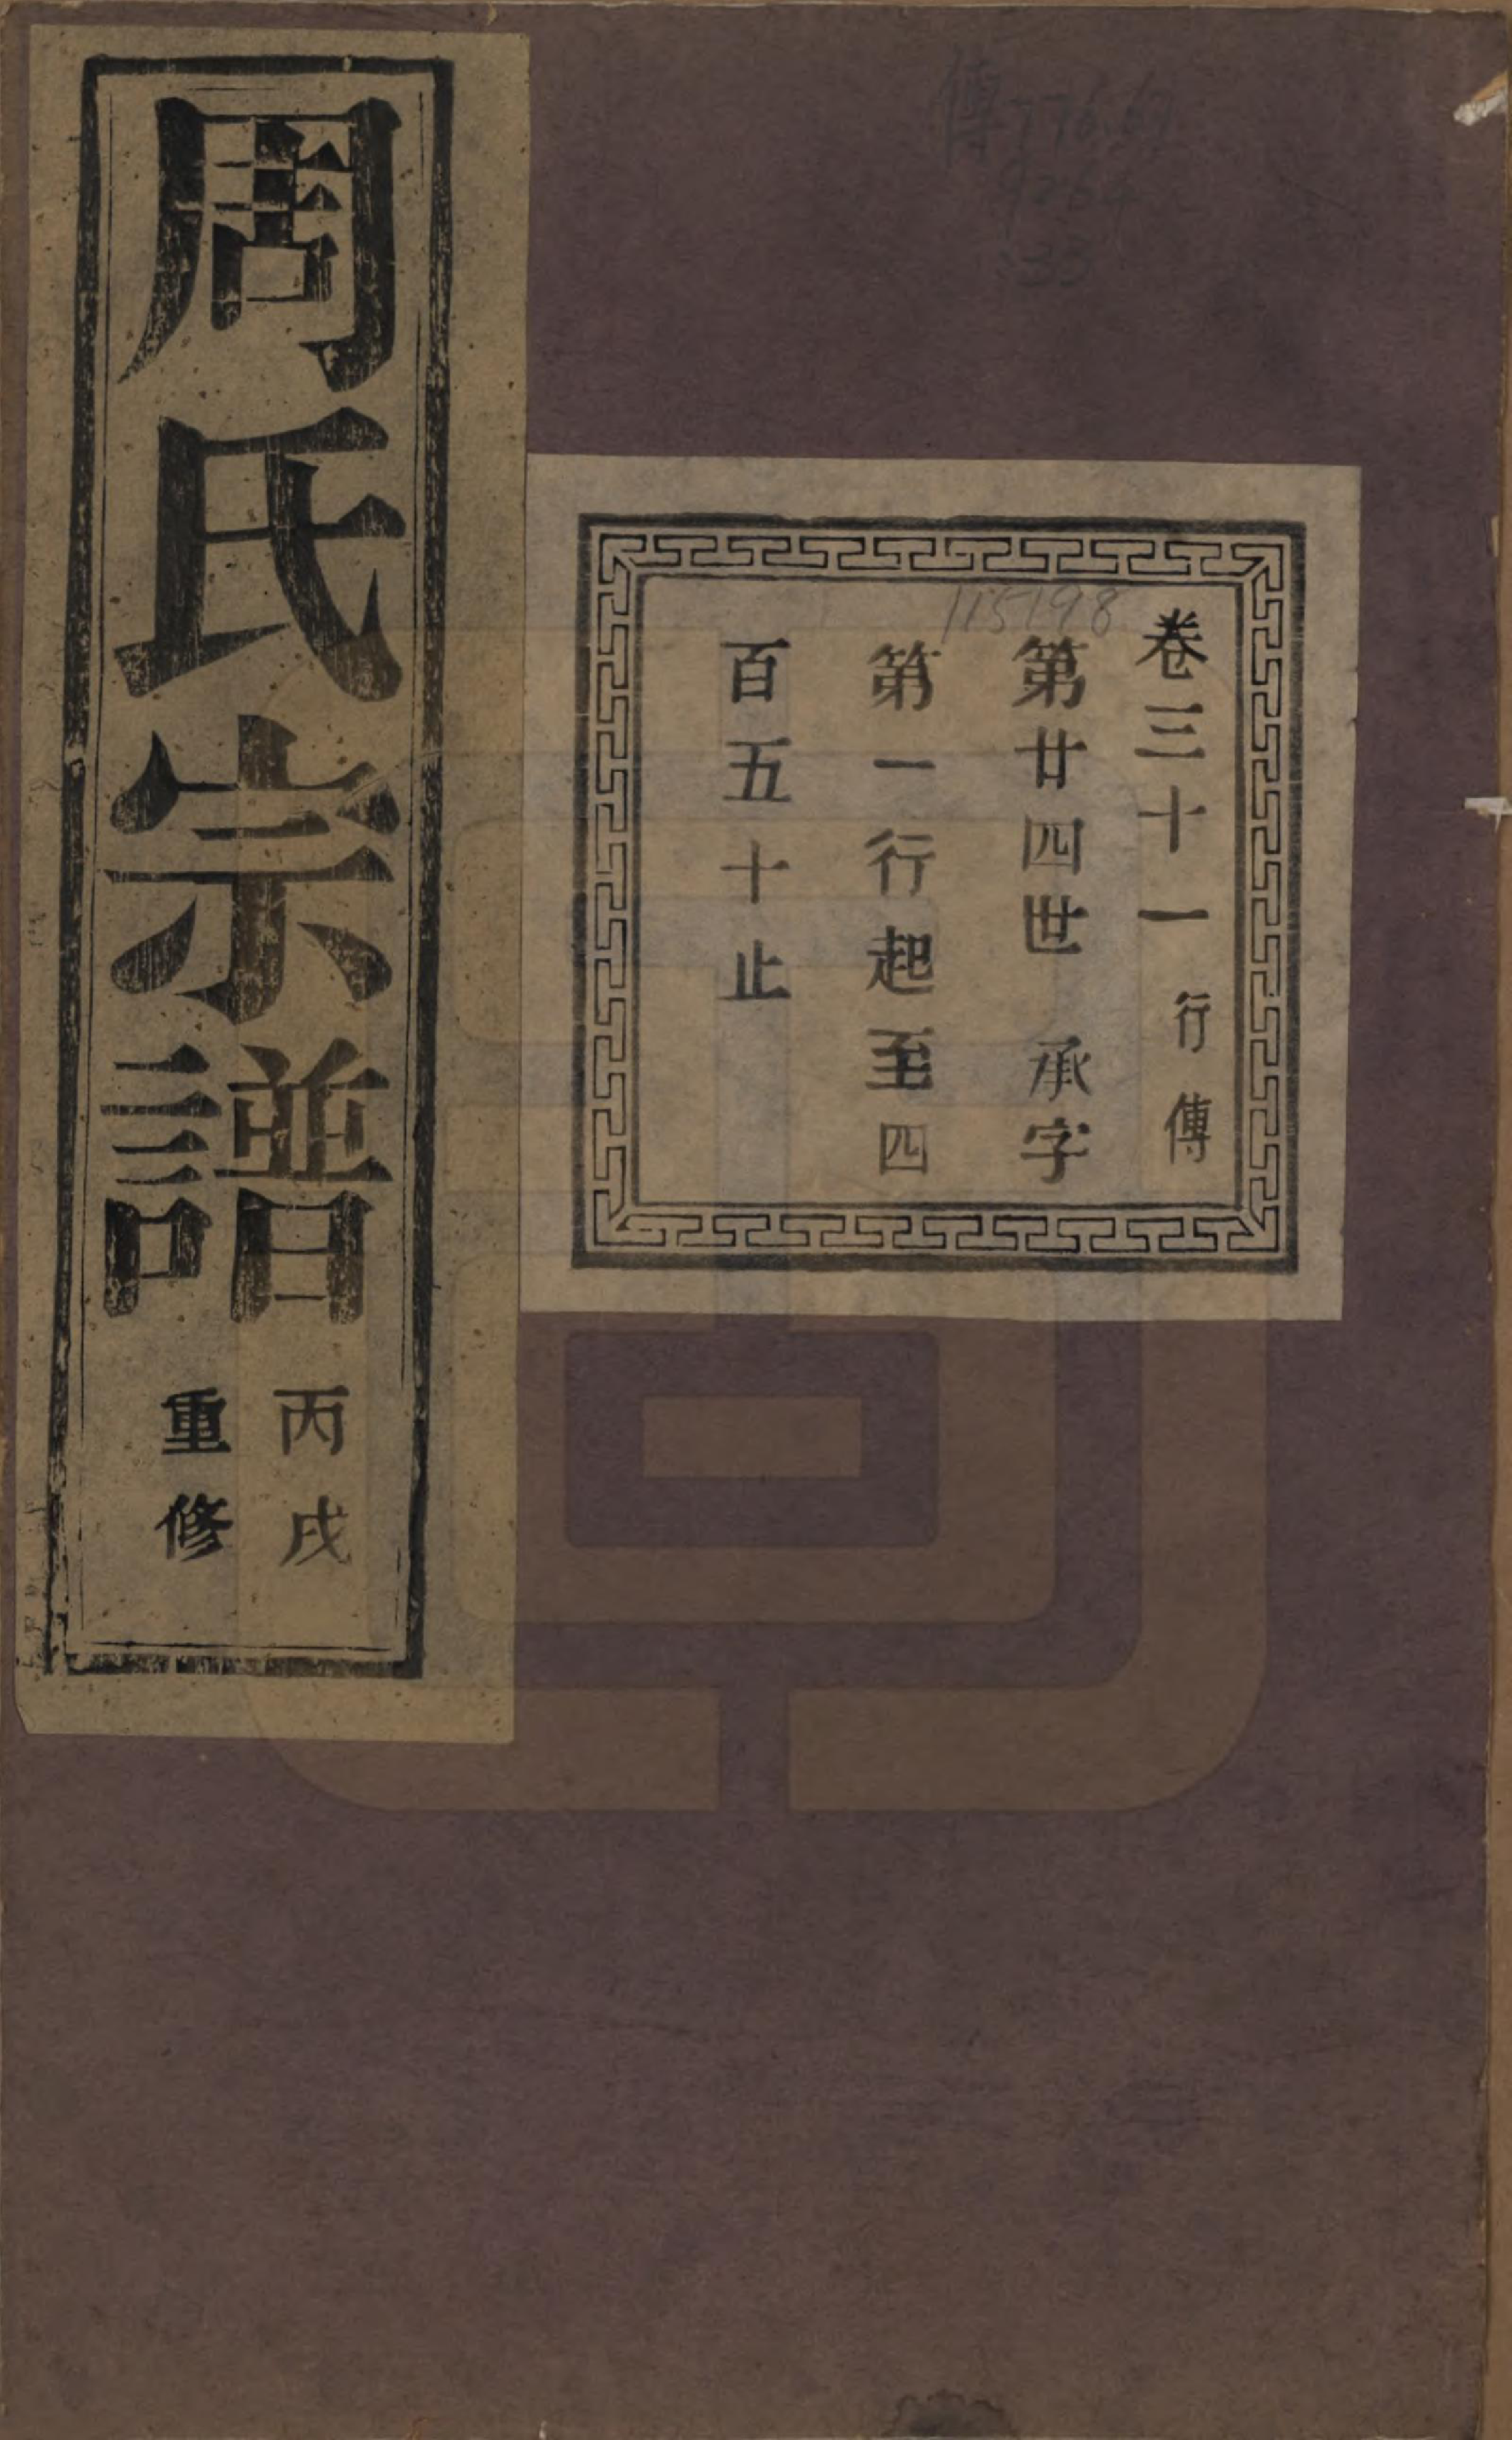 周氏宗譜
丙戌
重修
卷三十一 行傳
第廿四世 承字
第一行起至四
百五十止
115198
傳776.67
9264
:33